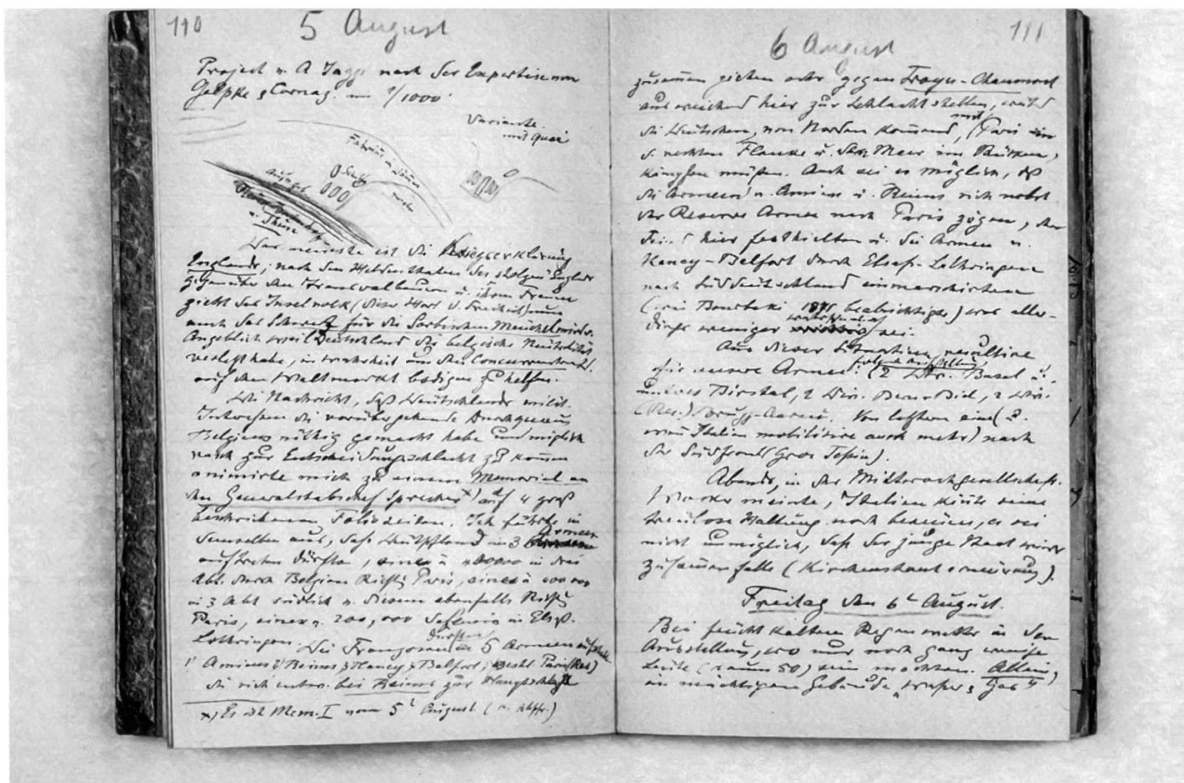 110
5 August
Project v. A Jaggi nach der Expertise von
Gelpke & Cornaz im 1/1000.
Variante
mit Quai
Das neueste ist die Kriegserklärung
Englands, nach dem Verhalten der Engländer
gegenüber den Transvaalburen u. ihren Frauen
zieht das Inselvolk (dieser Hort d. Freiheit) nun
auch das Schwert für die Serbischen Meuchelmörder.
Angeblich weil Deutschland die belgische Neutralität
verletzt habe, in Wahrheit um den Concurrenten
auf dem Weltmarkt bodigen zu helfen.
Die Nachricht, dass Deutschlands milit.
Interessen die vorübergehende
Belgiens nöthig gemacht habe und möglich
rasch zur Entscheidungsschlacht zu kommen
animirte mich zu einem Memorial an
den Generalstabschef Sprecher x) auf 4 gross
beschriebenen Folioseiten. Ich führte in
demselben aus, dass Deutschland in 3 Armeen
auftreten dürfte, eine à 400000 in drei
Abt. durch Belgien Richtg Paris, eine à
in 3 Abt. südlich v. diesem ebenfalls Richtg
Paris, eine v. 200,000 defensiv in Elsass-
Lothringen. Die Franzosen dürften 5 Armeen
1' Amiens & Reims & Nancy & Belfort,
die sich entw. bei Reims zur Hauptschlacht
x) Es ist Mem. I vom 5t August
111
6 August
zusammen ziehen oder gegen Troyes-Chaumont
ausweichend hier zur Schlacht stellen, während
die Deutschen, von Norden kommend, mit Paris in
d. rechten Flanke u. das Meer im Rücken,
kämpfen müssen. Auch sei es möglich, dass
die Armeen v. Amiens u. Reims sich nebst
der Reserve Armee nach Paris zögen, den
hier festhielten u. die Armeen v.
Nancy-Belfort durch Elsass-Lothringen
nach Süddeutschland einmarschirten
(wie Bourbaki beabsichtigte) was aller-
dings weniger wahrscheinlich sei.
Aus dieser Situation resultire
für unsere Armee folgende Stellung (2 Div. Basel u.
unteres Birstal, 2 Div. Bern-Biel, 2 Div.
(Res.) Brugg-Aarau. Von letztern eine (u.
wenn Italien mobilisire auch mehr) nach
der Südfront (Gros Tessin).
Abends in der Mittwochgesellschaft.
meinte, Italien könnte seine
treulose Haltung noch bereuen, es sei
nicht unmöglich, dass der junge Staat wieder
zusammen falle (Kirchenstaat erneuerung).
Freitag den 6t August.
Bei feucht kaltem Regenwetter in der
Ausstellung, wo nur noch ganz wenige
Leute (kaum 50) sein mochten. Allein,
in mächtigem Gebäude,